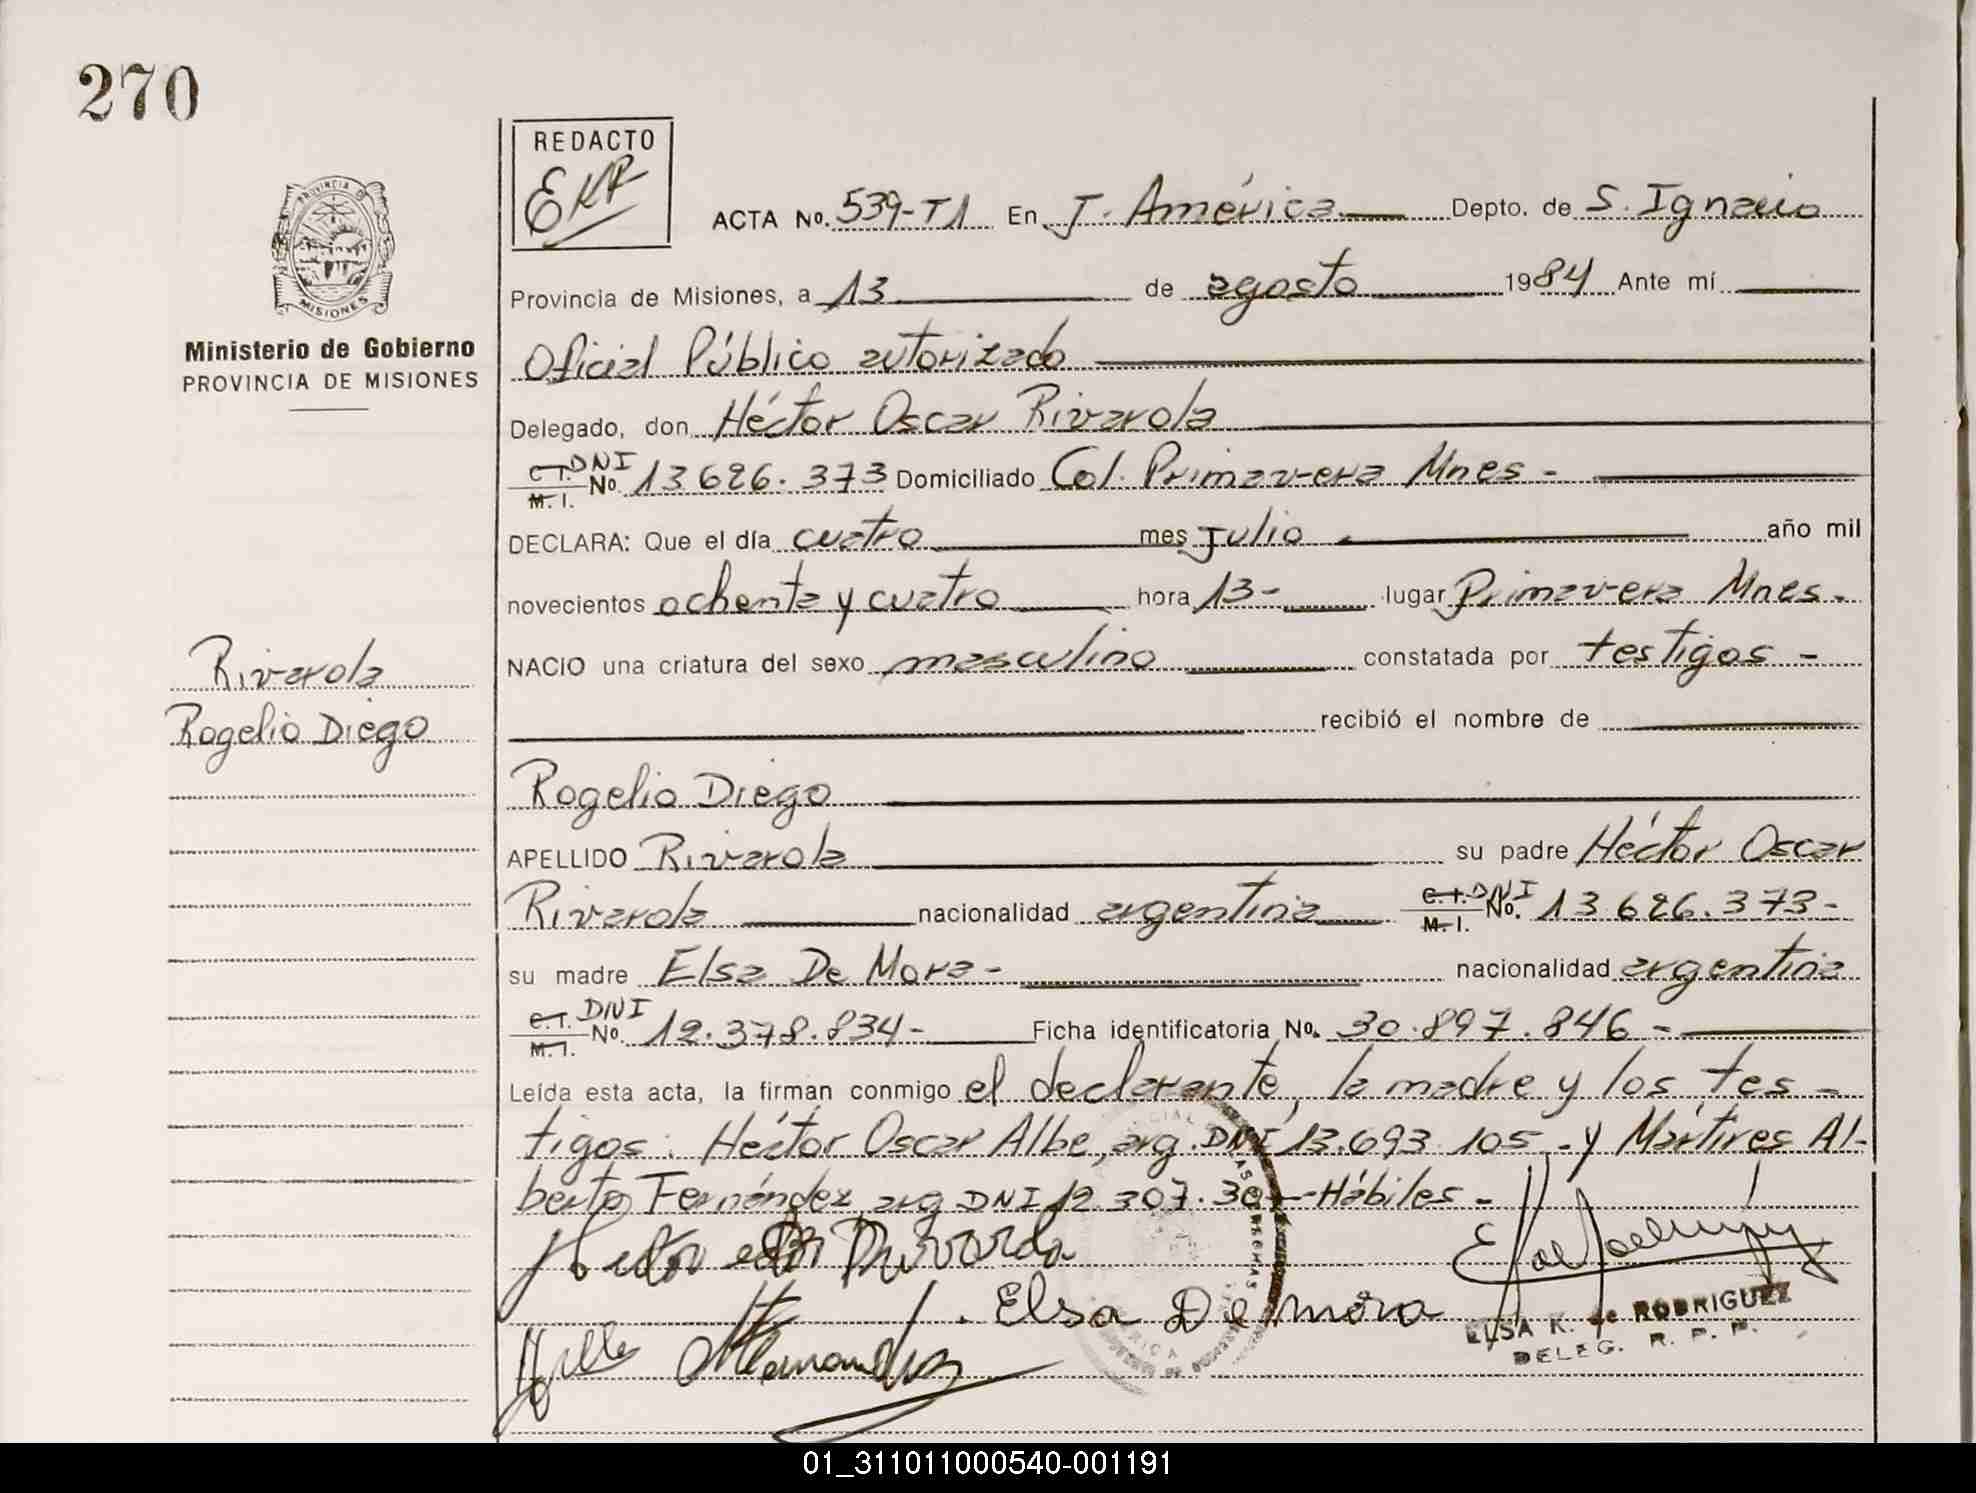 270
REDACTO
EKR
ACTA No. 539-T1 En J. América Depto. de S. Ignacio
PROVINCIA DE
MISIONES
Provincia de Misiones, a 13 de agosto 1984 Ante mí
Ministerio de Gobierno
PROVINCIA DE MISIONES
Oficial Público autorizado
Delegado, don Héctor Oscar Rivarola
C.I. DNI
M.I. No. 13626.373 Domiciliado Col. Primavera Mnes -
DECLARA: Que el día cuatro mes Julio año mil
novecientos ochenta y cuatro hora 13- lugar Primavera Mnes.
NACIO una criatura del sexo masculino constatada por testigos -
Rivarola
Rogelio Diego
recibió el nombre de
Rogelio Diego
APELLIDO Rivarola su padre Héctor Oscar
Rivarola nacionalidad argentina C.I. DNI M.I. No. 13626.373-
su madre Elsa De Mora - nacionalidad argentina
C.I. DNI
M.I. No. 12.378.834- Ficha identificatoria No. 30.897.846 -
Leída esta acta, la firman conmigo el declarante, la madre y los tes-
tigos: Héctor Oscar Albe, arg. DNI 13.693.105 - y Mártires Al-
berto Fernández arg DNI 12.307. - Hábiles -
Elsa De mora
ELSA K. de RODRIGUEZ
DELEG. R. P. P.
01_311011000540-001191